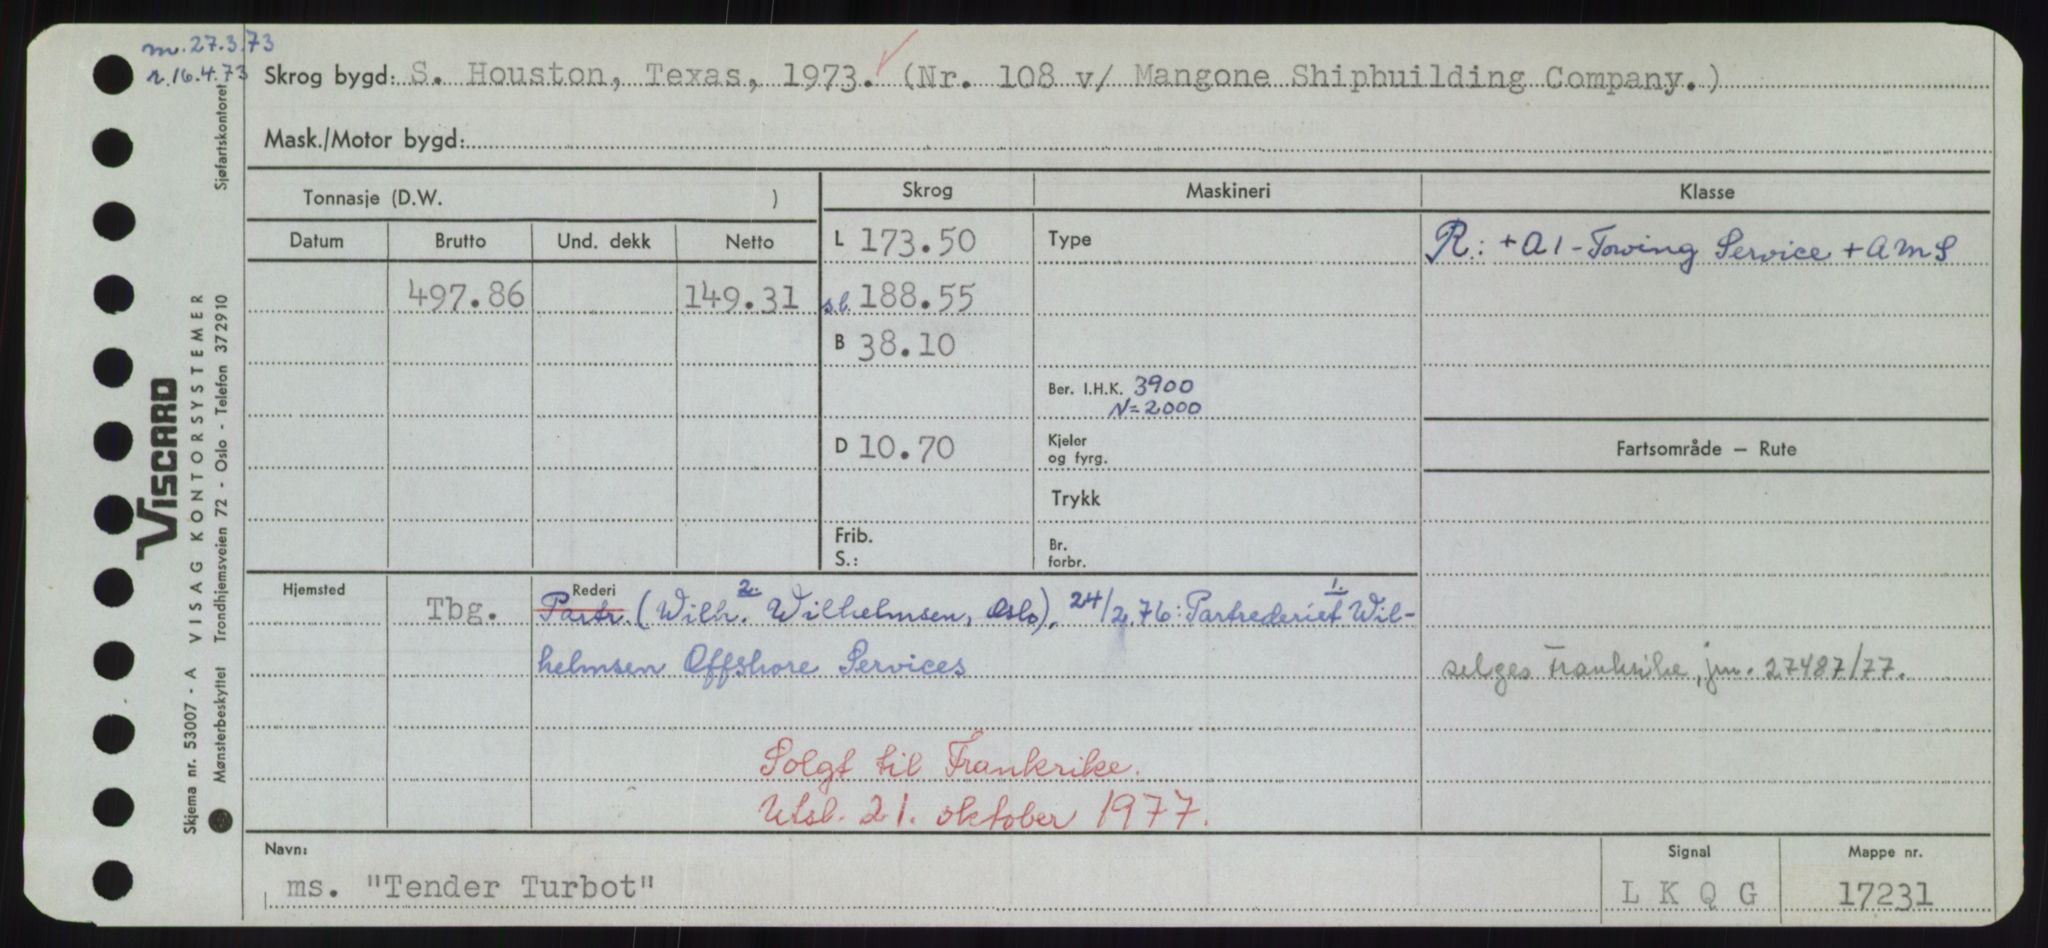 m. 27.3.73
r. 16.4.73
Skrog bygd: S. Houston, Texas, 1973. (Nr. 108 v/ Mangone Shipbuilding Company.)
Mask./Motor bygd:
Tonnasje (D.W. )
Skrog
Maskineri
Klasse
Datum
Brutto
Und. dekk
Netto
L 173.50
Type
R: +A1-Towing Service +AMS
497.86
149.31
s.l. 188.55
B 38.10
Ber. I.H.K. 3900
N=2000
D 10.70
Kjeler
og fyrg.
Fartsområde – Rute
Trykk
Frib.
S.:
Br.
forbr.
Hjemsted
Rederi
2.
1.
Tbg.
Partr. (Wilh. Wilhelmsen, Oslo), 24/2.76: Partrederiet Wil-
helmsen Offshore Services
selges Frankrike, jnr. 27487/77.
Solgt til Frankrike.
Utsl. 21. oktober 1977.
Navn:
ms. "Tender Turbot"
Signal
L K Q G
Mappe nr.
17231
VISCARD
Skjema nr. 53007 - A VISAG KONTORSYSTEMER
Mønsterbeskyttet Trondhjemsveien 72 - Oslo - Telefon 372910
Sjøfartskontoret